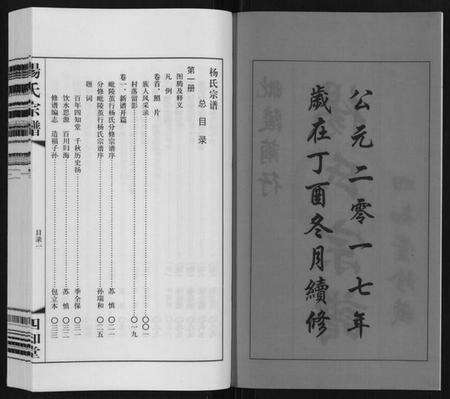 公元二零一七年
歲在丁酉冬月續修
杨氏宗谱
总目录
第一册
图腾及释义
凡例
卷首、照片
族人风采录 〇〇一
村落留影 〇一九
卷一、新谱开篇
毗陵茧行杨氏分修宗谱序 苏慎 〇二一
分修毗陵茧行杨氏宗谱序 孙瑞和 〇二五
题词
百年四知堂 千秋历史扬 季全保 〇三一
饮水思源 百川归海 苏慎 〇三二
修谱编志 造福子孙 包立本 〇三三
楊氏宗譜
目录一
四知堂